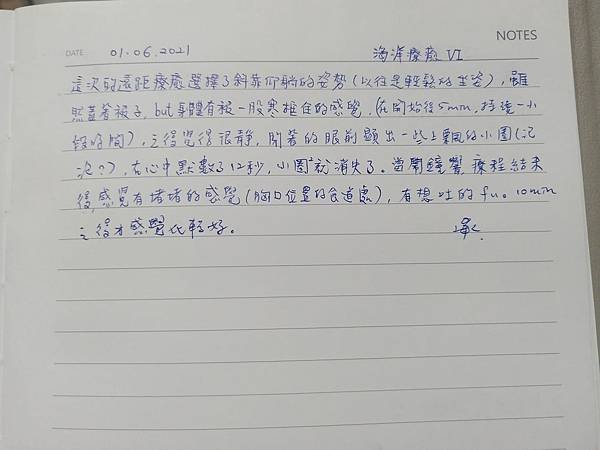 NOTES
DATE 01.06.2021 海洋療癒 VI
這次的遠距療癒選擇了斜靠仰躺的姿勢(以往是輕鬆的坐姿),雖
然蓋著被子,but身體有被一股寒框住的感覺,(在開始後5min,持續一小
段時間),之後覺得很靜,閉著的眼前顯出一些上飄的小圈(泡
泡??),在心中默數了12秒,小圈就消失了。當聞鐘響療程結束
後,感覺有堵堵的感覺(胸口位置的食道處),有想吐的fu。10min
之後才感覺比較好。